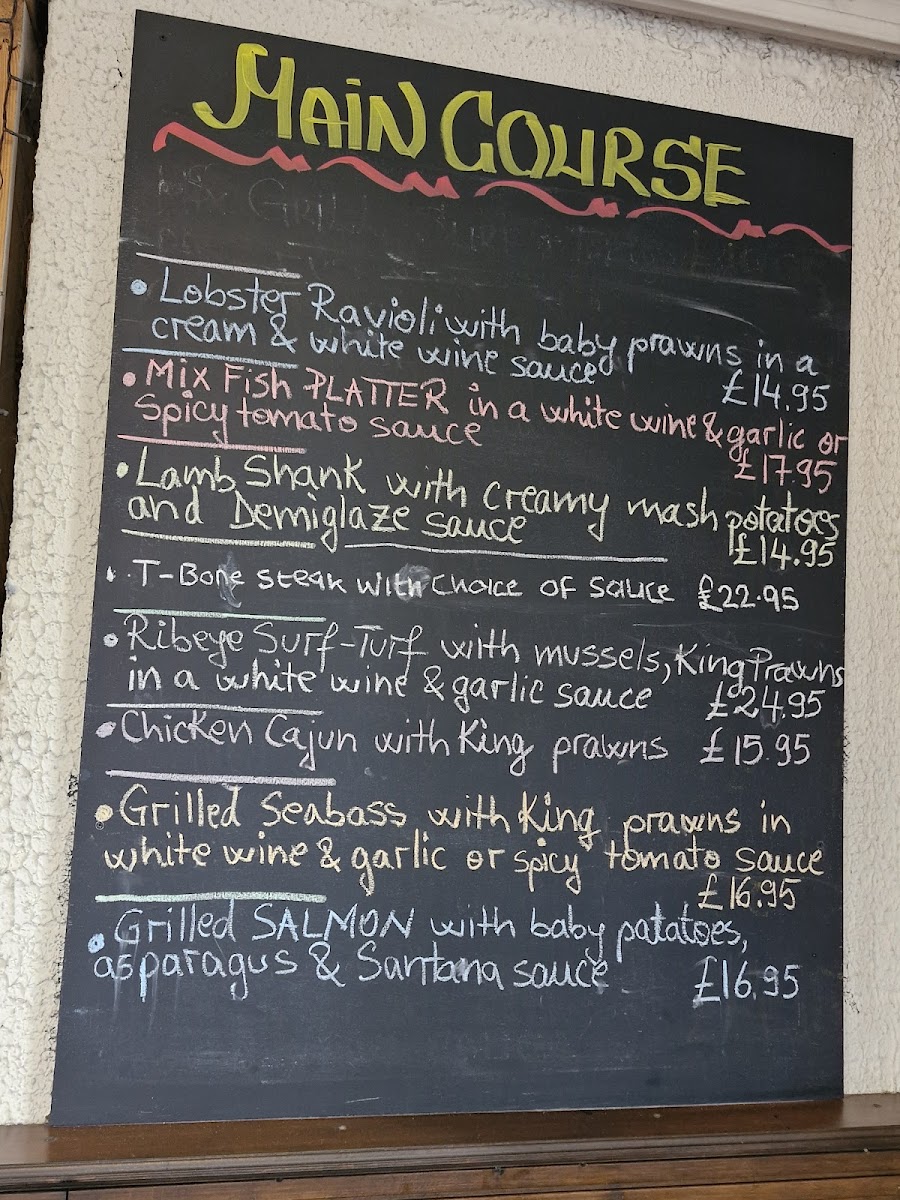 MAIN COURSE
• Lobster Ravioli with baby prawns in a
cream & white wine sauce £14.95
• Mix Fish PLATTER in a white wine & garlic or
spicy tomato sauce £17.95
• Lamb Shank with creamy mash potatoes
and Demiglaze sauce £14.95
• T-Bone steak with choice of sauce £22.95
• Ribeye Surf-Turf with mussels, King Prawns
in a white wine & garlic sauce £24.95
• Chicken Cajun with King prawns £15.95
• Grilled Seabass with King prawns in
white wine & garlic or spicy tomato sauce
£16.95
• Grilled SALMON with baby patatoes,
asparagus & Santana sauce £16.95